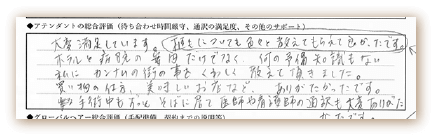 ◆アテンダントの総合評価(待ち合わせ時間厳守、通訳の満足度、その他のサポート)
大変満足しています。 続きについても色々と教えてもらえて良かったです。
ホテルと病院の案内だけでなく、何の予備知識もない
私に カンナムの街の事を くわしく 教えて頂きました。
買い物の仕方、美味しいお店など、ありがたかったです。
手術中も そばに居て 医師や看護師の通訳も 大変ありがた
かったです。
◆グローバルヘアー総合評価(手配準備、契約までの説明等)